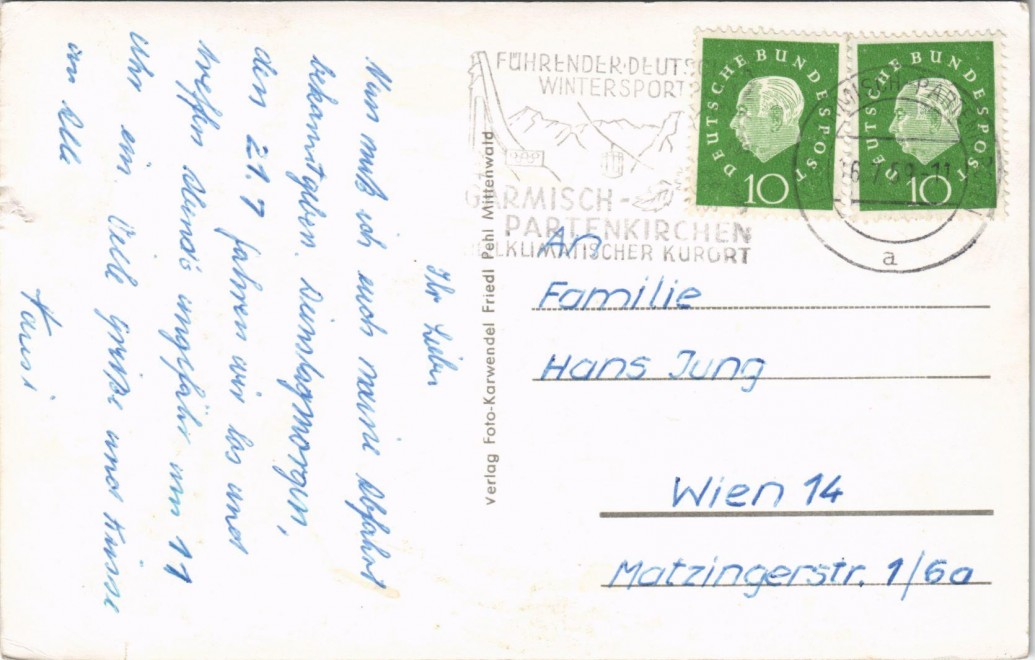 Ihr Lieben
Nun muß ich euch meine Abfahrt
bekanntgeben. Dienstagmorgen,
den 21.7 fahren wir los und
treffen Abends ungefähr um 11
Uhr ein. Viele Grüße und Küsse
an Alle
Hansi
Verlag Foto-Karwendel Friedl Pehl Mittenwald
FÜHRENDER DEUTSCH
WINTERSPORT
GARMISCH-
PARTENKIRCHEN
HEILKLIMATISCHER KURORT
DEUTSCHE BUNDESPOST
10
DEUTSCHE BUNDESPOST
10
16.7.59-11
a
An
Familie
Hans Jung
Wien 14
Matzingerstr. 1/6a